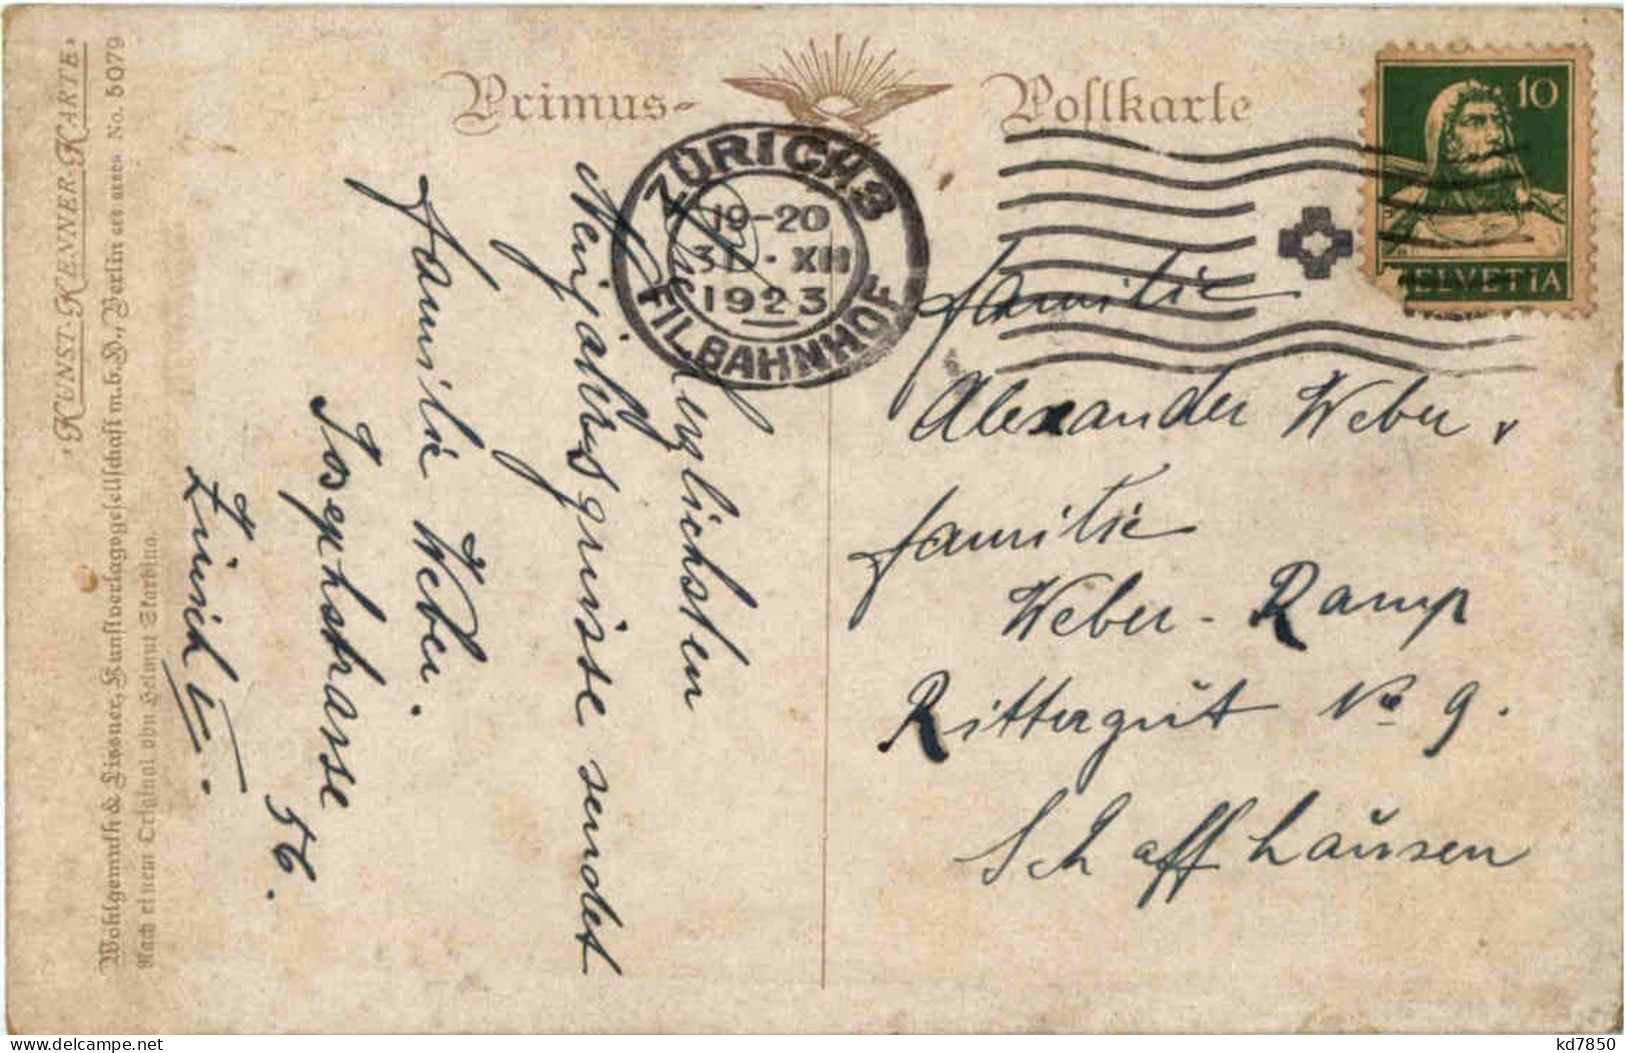 Primus-
Postkarte
"KUNST-KENNER-KARTE"
Wohlgemuth & Lissner, Kunstverlagsgesellschaft m.b.H., Berlin No. 5079
Nach einem Original von Helmut Skarbina.
ZÜRICH 3
19-20
31. XII
1923
FIL. BAHNHOF
10
HELVETIA
Die herzlichsten
Neujahrsgrüsse sendet
Familie Weber.
Josephstrasse
56.
Zürich V.
Familie
Alexander Weber
Familie
Weber-Ramp
Rittergut No 9.
Schaffhausen
kd7850